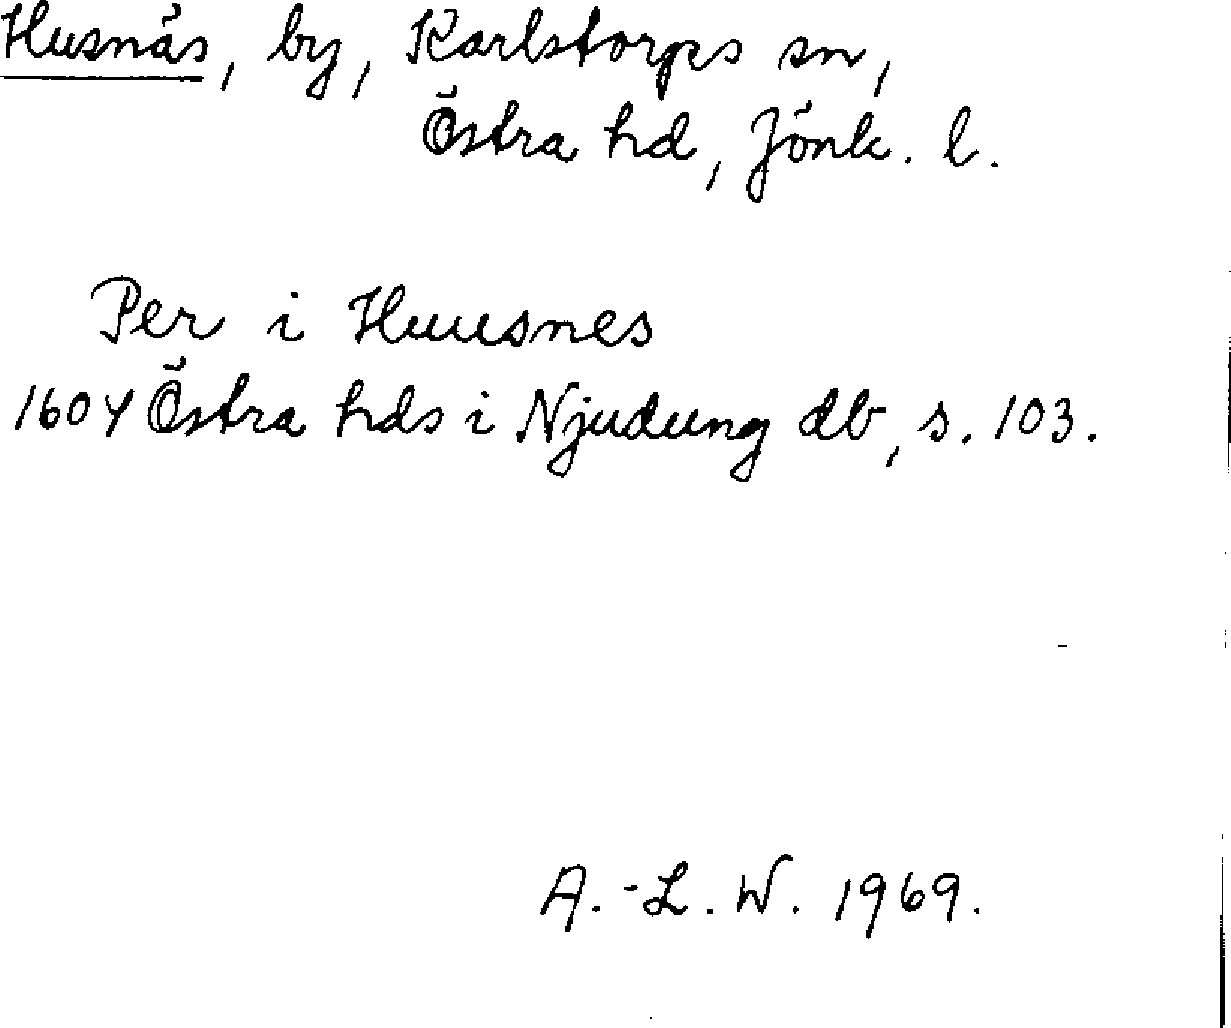 Husnäs, by, Karlstorps sn,
Östra hd, Jönk. l.
Per i Huusnes
1604 Östra hds i Njudung db, s. 103.
A.-L. W. 1969.